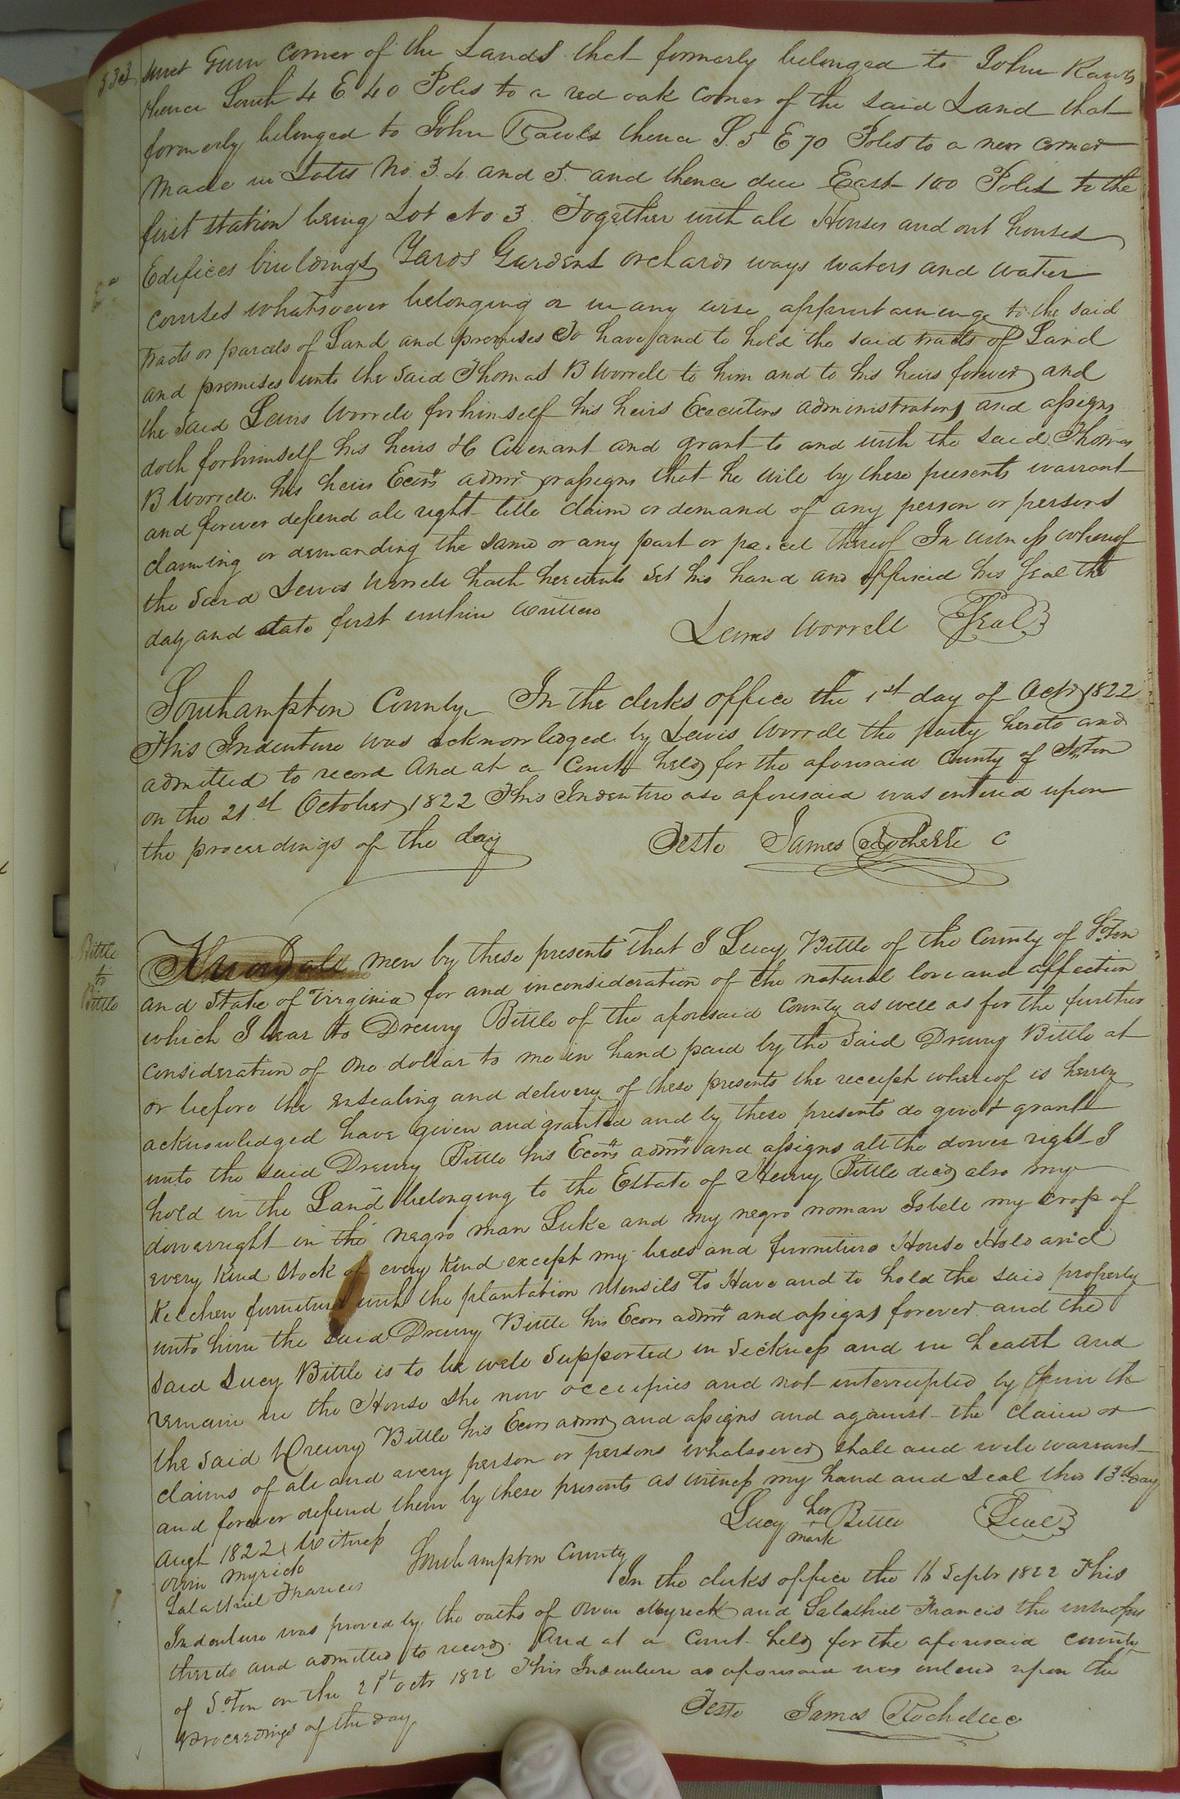 333
sweet Gum corner of the Lands that formerly belonged to John Rawls
thence South 4 E 40 Poles to a red oak corner of the said Land that
formerly belonged to John Rawls thence S. 5 E 70 Poles to a new corner
made in Lotts No 3. 4 and 5. and thence due East 100 Poles to the
first station being Lot No 3. Together with all Houses and out houses
Edifices buildings Yards Gardens orchards ways waters and water
courses whatsoever belonging or in any wise appurtaining to the said
tracts or parcels of Land and premises To have and to hold the said tracts of Land
and premises unto the said Thomas B Worrell to him and to his heirs forever and
the said Lewis Worrell for himself his heirs Executors administrators and assigns
doth for himself his heirs &C Covenant and grant to and with the said Thomas
B Worrell his heirs Ecors admrs or assigns that he will by these presents warrant
and forever defend all right title claim or demand of any person or persons
claiming or demanding the same or any part or parcel thereof In witness whereof
the said Lewis Worrell hath hereunto set his hand and affixed his seal the
day and date first within written
Lewis Worrell Seal
Southampton County In the clerks office the 1st day of Octr 1822
This Indenture was acknowledged by Lewis Worrell the party hereto and
admitted to record And at a Court held for the aforesaid County of So.ton
on the 21st October 1822 This Indenture as aforesaid was entered upon
the proceedings of the day
Teste James Rochelle C
Bittle
to
Bittle
Know all men by these presents that I Lucy Bittle of the County of So.ton
and State of Virginia for and inconsideration of the natural love and affection
which I bear to Drewry Bittle of the aforesaid County as well as for the further
consideration of one dollar to me in hand paid by the said Drewry Bittle at
or before the ensealing and delivery of these presents the receipt whereof is hereby
acknowledged have given and granted and by these presents do give & grant
unto the said Drewry Bittle his Ecors admrs and assigns all the dower right I
hold in the Land belonging to the Estate of Henry Bittle decd also my
dowerright in the negro man Luke and my negro woman Isbell my crop of
every kind stock of every kind except my beds and furniture House Hold and
Kitchen furniture with the plantation utensils To Have and to hold the said property
unto him the said Drewry Bittle his Ecors admrs and assigns forever and the
said Lucy Bittle is to be well supported in sickness and in health and
remain in the House she now occupies and not interrupted by him the
the said Drewry Bittle his Ecors admrs and assigns and against the claim or
claims of all and every person or persons whatsoever shall and will warrant
and forever defend them by these presents as witness my hand and seal this 13th day
Augt 1822
Lucy her mark Bittle Seal
Witness
Owin Myrick
Salathiel Francis
Southampton County
In the clerks office the 16 Septr 1822 This
Indenture was proved by the oaths of Owen Myrick and Salathiel Francis the witnesses
thereto and admitted to record. And at a Court held for the aforesaid county
of So.ton on the 21st Octr 1822 This Indenture as aforesaid was entered upon the
Proceedings of the day
Teste James Rochelle C